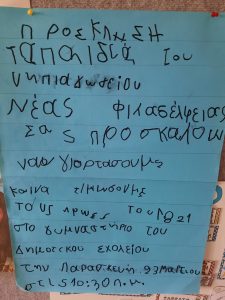 ΠΡΟΣΚΛΗΣΗ
ΤΑ ΠΑΙΔΙΑ του
Νηπιαγωγείου
Νέας Φιλαδέλφειας
Σας προσκαλουν
να γιορτασουμε
και να τιμησουμε
τους ηρωες του 1821
στο γυμναστήριο του
Δημοτικου σχολείου
την Παρασκευή 23 Μαρτιου
στις 10:30 π.μ.